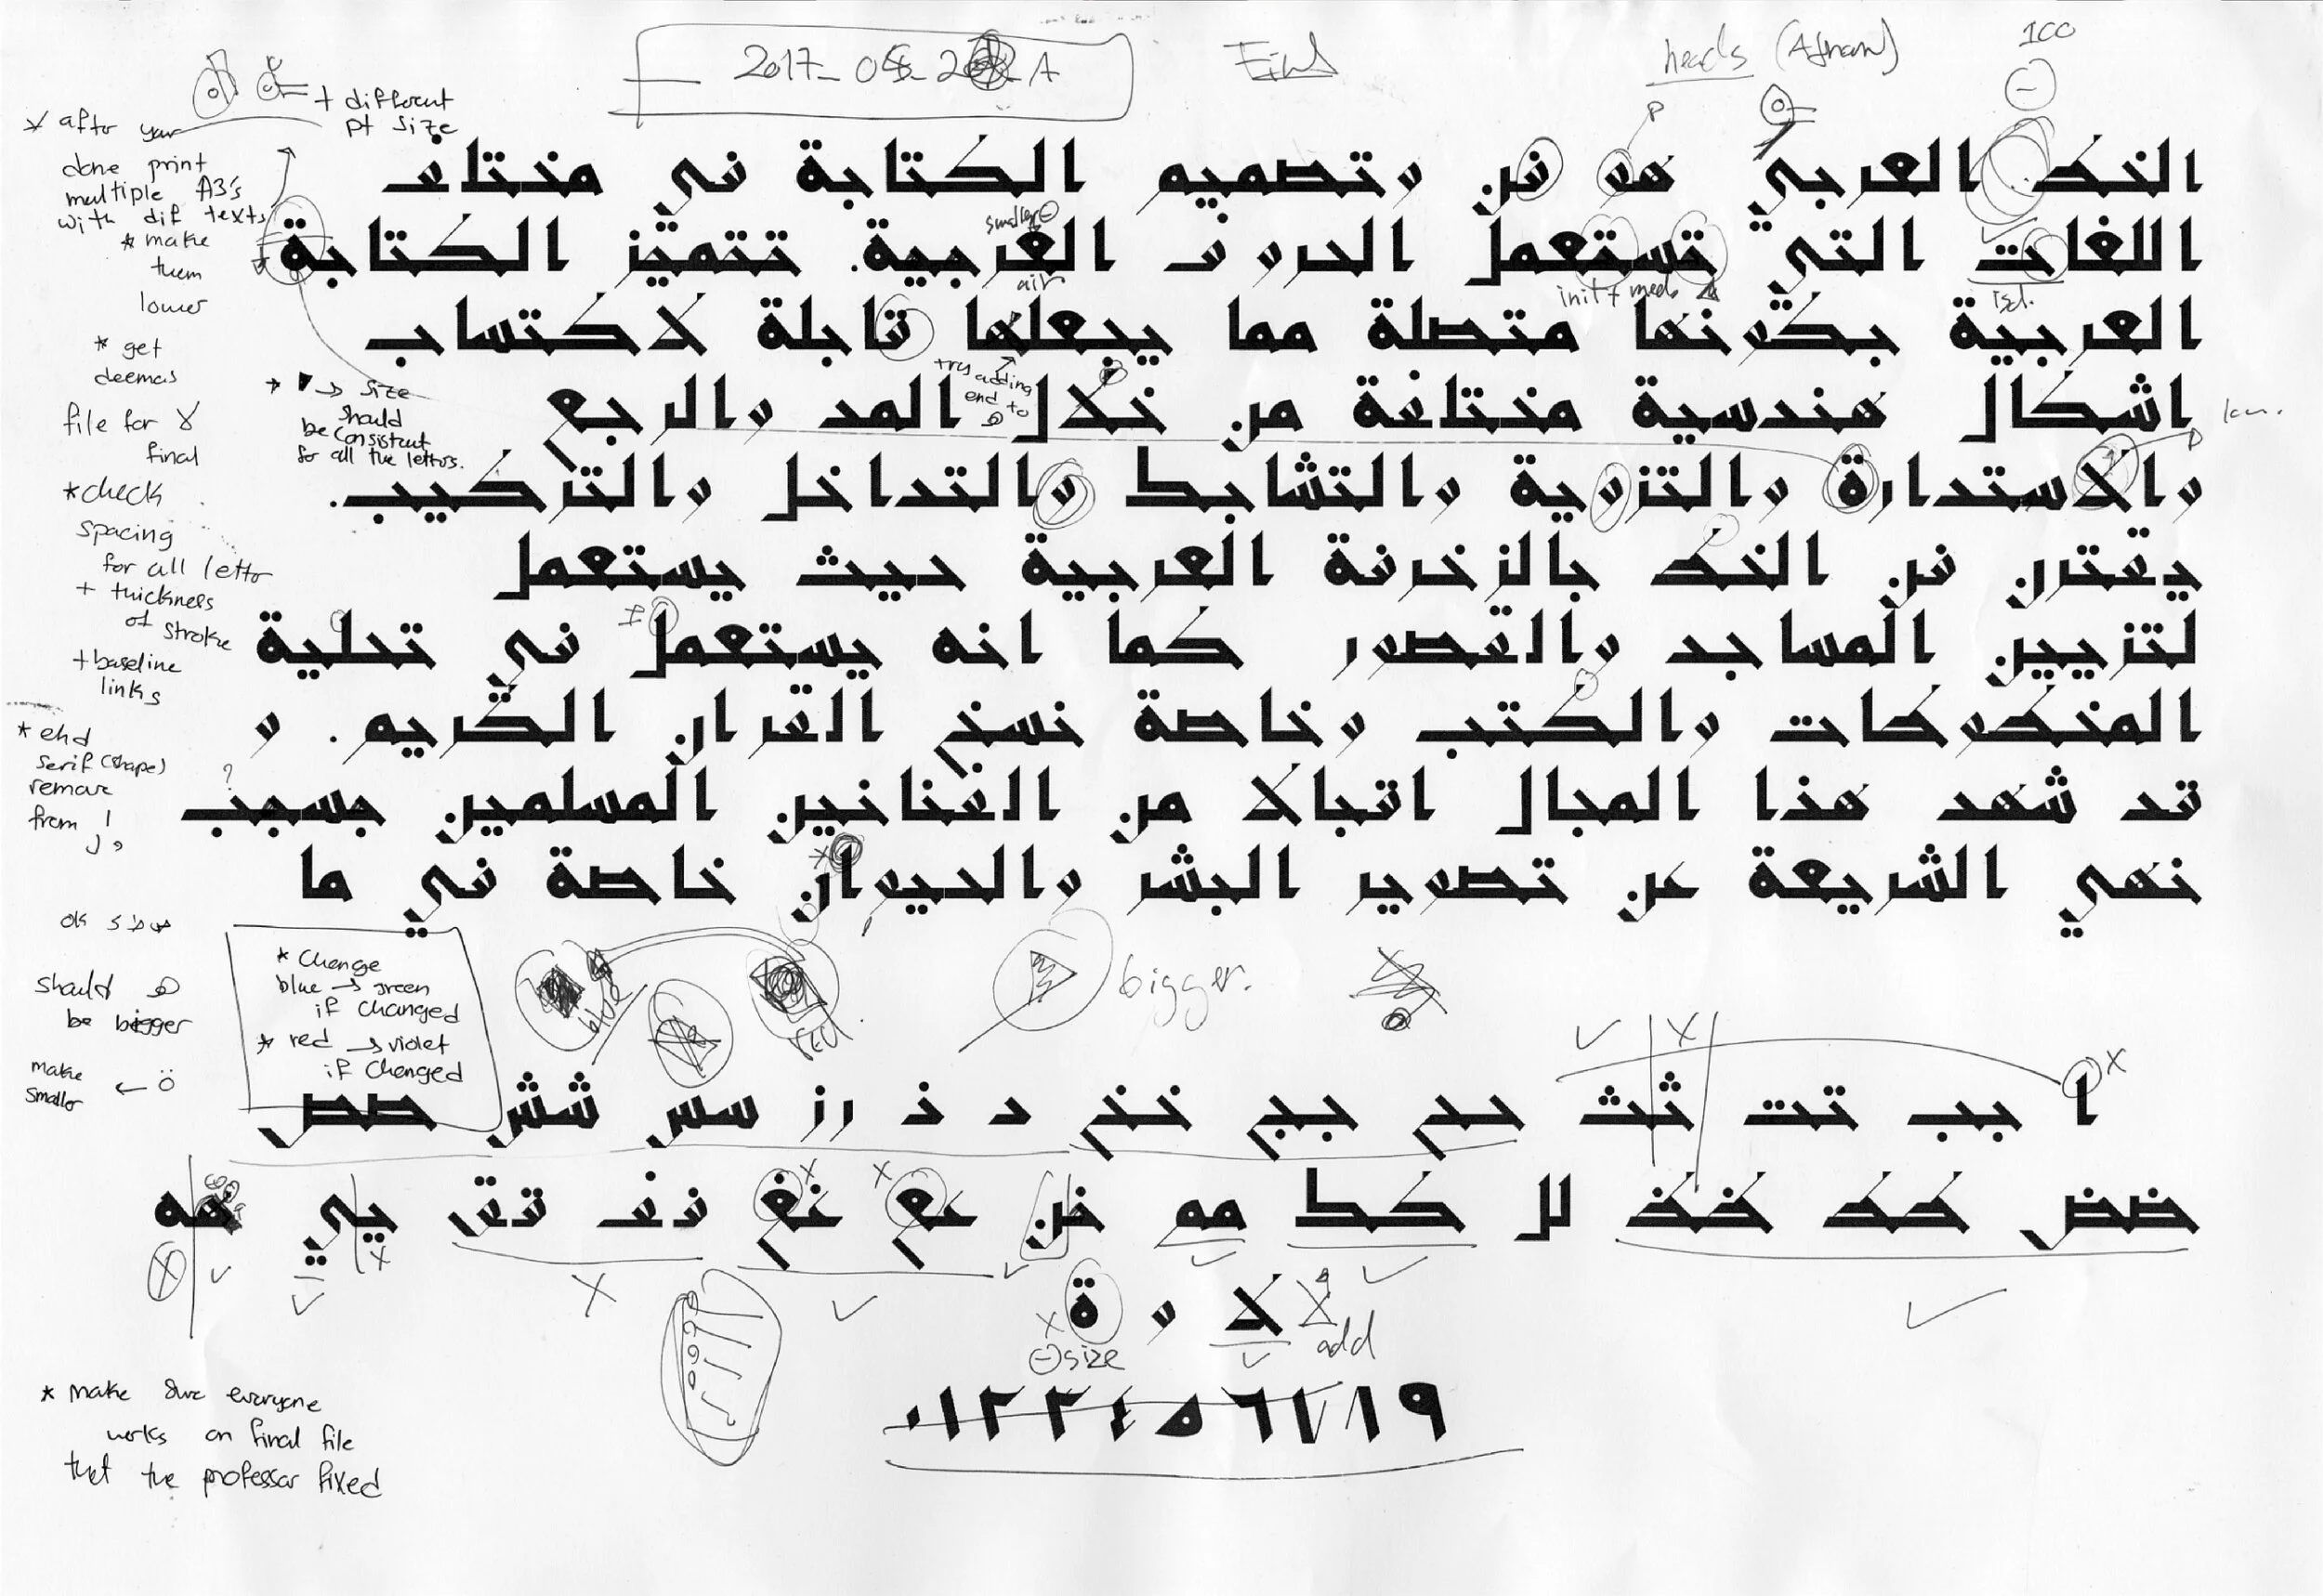 2017-08-28-A
Find
heads (Afnan)
100
+ different
pt size
* after your
done print
multiple A3's
with dif texts
* make
them
lower
* get
deemas
file for
final
* check
spacing
for all letter
+ thickness
of stroke
+ baseline
links
* end
serif (shape)
remove
from
* size
should
be consistent
for all the letters.
الخط العربي هو فن وتصميم الكتابة في مختلف
smaller
اللغات التي تستعمل الحروف العربية. تتميز الكتابة
air
init + med
isol.
العربية بكونها متصلة مما يجعلها قابلة لاكتساب
try adding
end to
اشكال هندسية مختلفة من خلال المد والرجع
والاستدارة والتزوية والتشابط والتداخل والتركيب.
يقترن فن الخط بالزخرفة العربية حيث يستعمل
لتزيين المساجد والقصور كما انه يستعمل في تحلية
المخطوطات والكتب وخاصة نسخ القران الكريم. و
قد شهد هذا المجال اقبالا من الفنانين المسلمين بسبب
?
نهي الشريعة عن تصوير البشر والحيوان خاصة في ما
ok
should
be bigger
make
smaller
* change
blue → green
if changed
* red → violet
if changed
blue
red
bigger.
ا بب تت ثث حح جج خخ د ذ رز سس شش صص
ضض طط ظظ لل كك مم نن عع غغ فف قق يي هه
لا و ة
add
size
٠١٢٣٤٥٦٧٨٩
* make sure everyone
works on final file
that the professor fixed